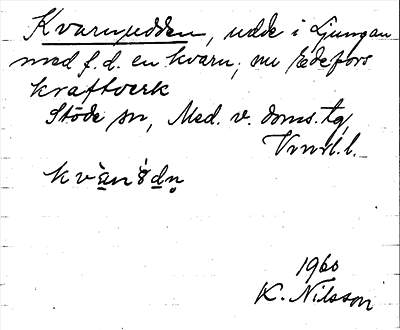 Kvarnudden, udde i Ljungan
med f.d. en kvarn, nu Edefors
kraftverk
Stöde sn, Med. v. doms. tg,
Vnrl. l.
1960
K. Nilsson